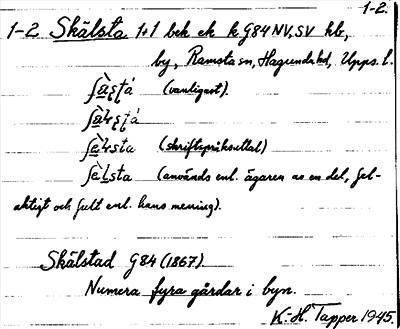 1-2.
1-2 Skälsta 1+1 bek ek k G84 NV, SV hk,
by, Ramsta sn, Hagunda hd, Upps. l.
(vanligast).
(skriftspråksuttal)
(används enl. ägaren av en del, fel-
aktigt och fult enl. hans mening).
Skälstad G84 (1867)
Numera fyra gårdar i byn.
K-H. Tapper 1945.